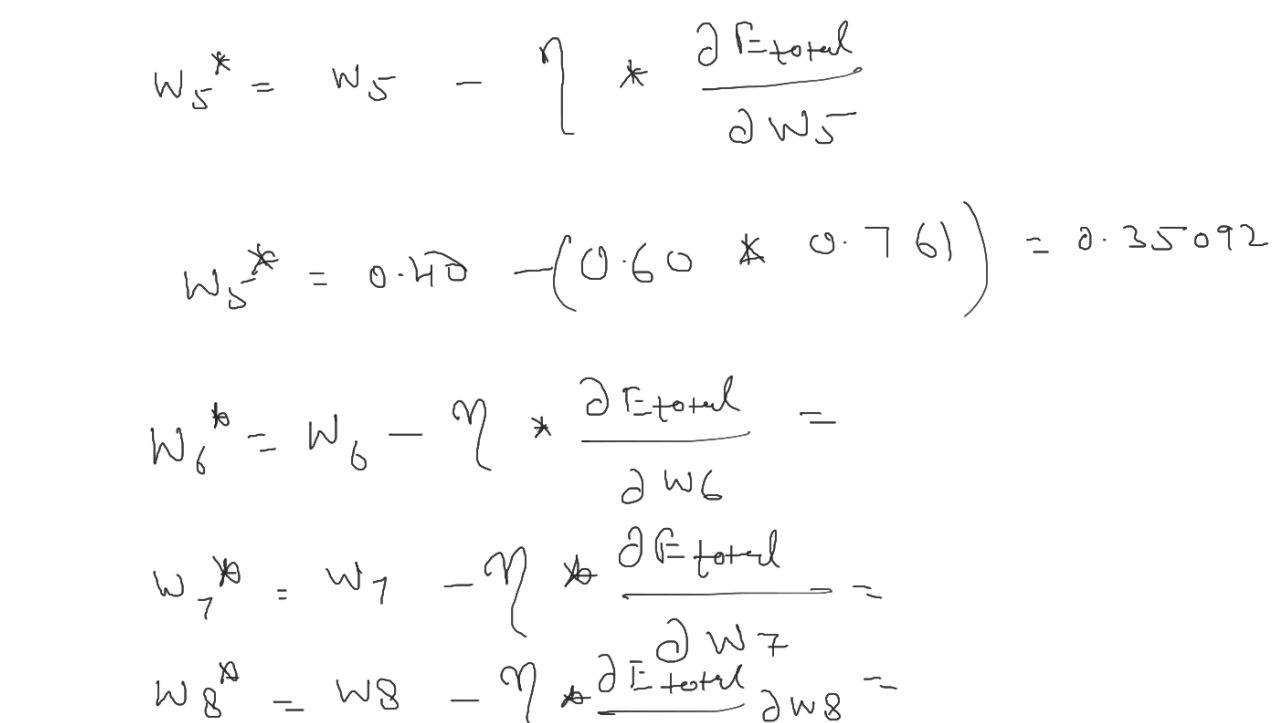 W5* = W5 - η * ∂Etotal / ∂W5
W5* = 0.40 - (0.60 * 0.761) = 0.35092
W6* = W6 - η * ∂Etotal / ∂W6 =
W7* = W7 - η * ∂Etotal / ∂W7 =
W8* = W8 - η * ∂Etotal / ∂W8 =